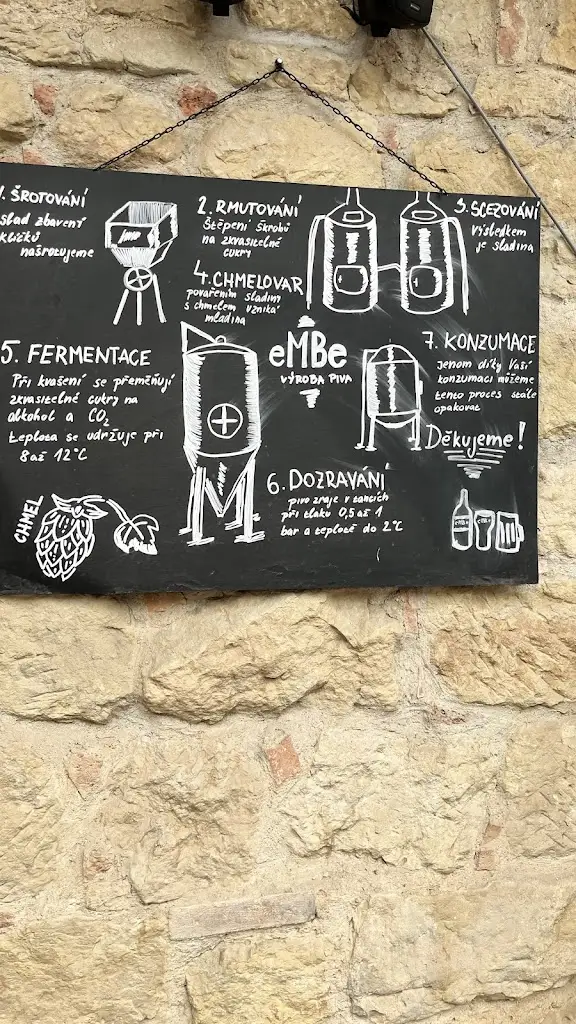 1. ŠROTOVÁNÍ
slad zbavený
klíčků
našrotujeme
2. RMUTOVÁNÍ
Štěpení škrobů
na zkvasitelné
cukry
3. SCEZOVÁNÍ
výsledkem
je sladina
4. CHMELOVAR
povařením sladiny
s chmelem vzniká
mladina
eMBe
VÝROBA PIVA
5. FERMENTACE
Při kvašení se přeměňují
zkvasitelné cukry na
alkohol a CO2
teplota se udržuje při
8 až 12°C
6. DOZRÁVÁNÍ
pivo zraje v tancích
při tlaku 0,5 až 1
bar a teplotě do 2°C
7. KONZUMACE
jenom díky Vaší
konzumaci můžeme
tento proces stále
opakovat
Děkujeme!
CHMEL
eMBe
eMBe